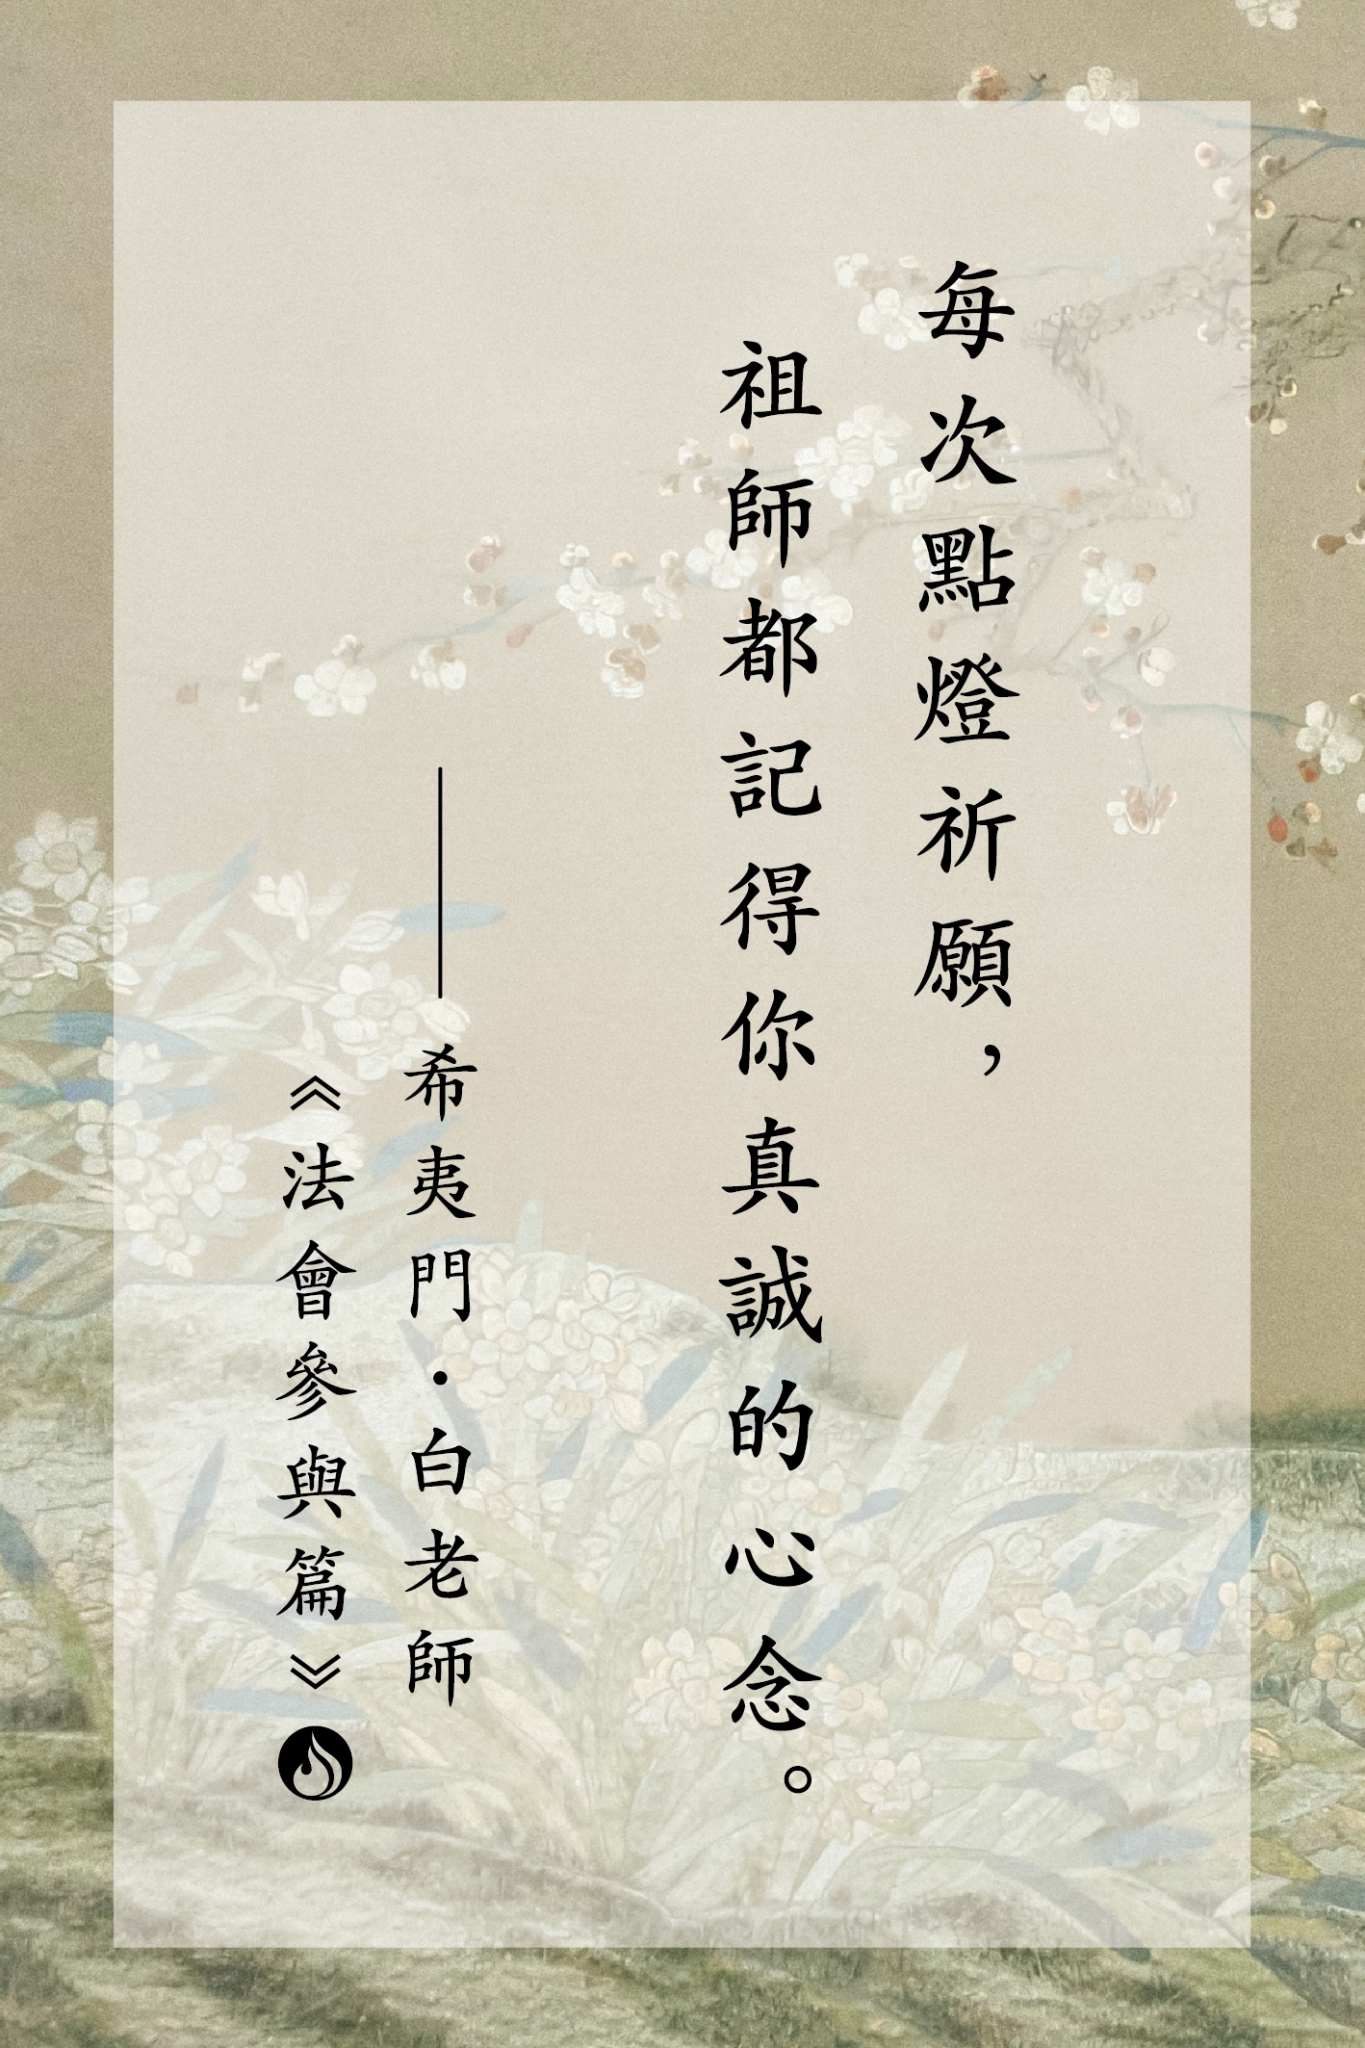 每次點燈祈願，
祖師都記得你真誠的心念。
——希夷門・白老師
《法會參與篇》